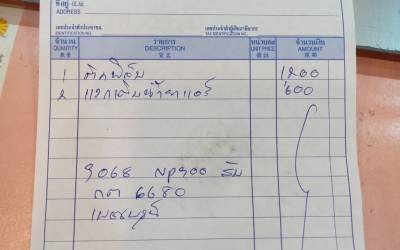 ที่อยู่
ADDRESS
เลขประจำตัวประชาชน
IDENTIFICATION NO.
เลขประจำตัวผู้เสียภาษีอากร
TAX IDENTIFICATION NO.
จำนวน รายการ หน่วยละ จำนวนเงิน
QUANTITY DESCRIPTION UNIT PRICE AMOUNT
1 ติดฟิล์ม 1200
2 น้ำยาแอร์ 600
9068 NP300
กต 6680
เพชรบูรณ์